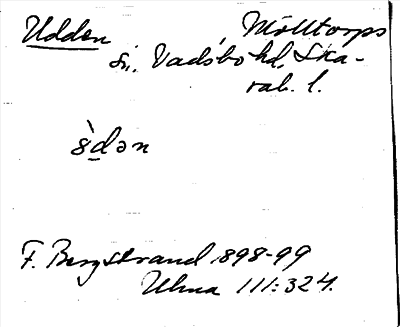 Udden, Mölltorps
sn. Vadsbo hd, Ska-
rab. l.
ẁdən
F. Bergstrand 1898-99
Ulma 111:324.